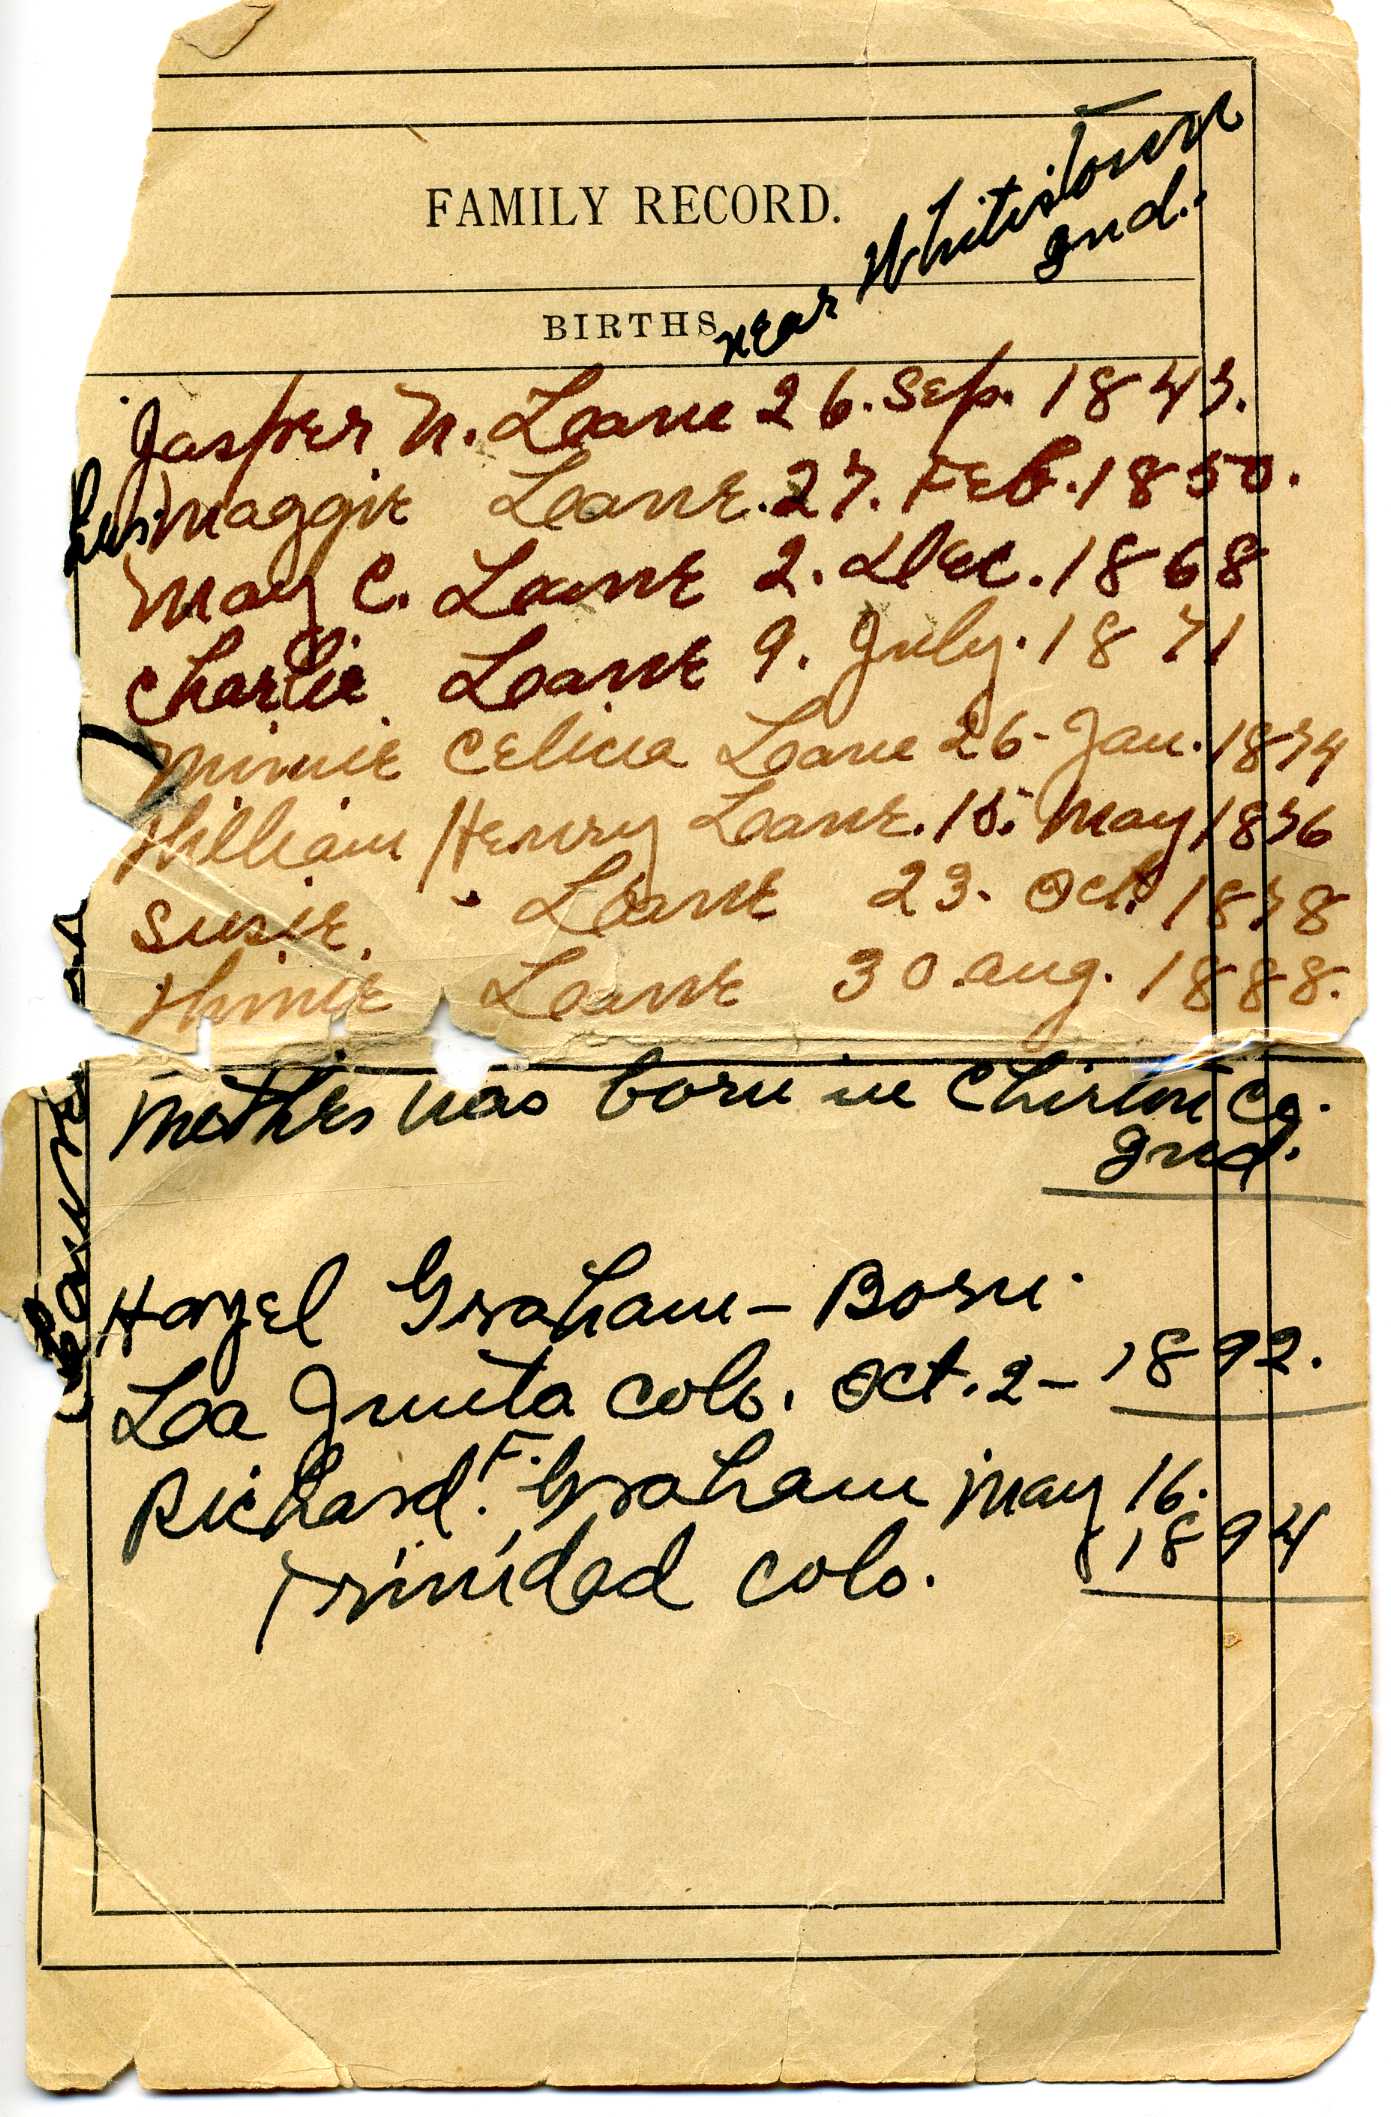 FAMILY RECORD.
near Whitistown
Ind.
BIRTHS
Jasper N. Loane 26. Sep. 1843.
Maggie Loane. 27. Feb. 1850.
May C. Loane 2. Dec. 1868
Charlie Loane 9. July. 1871
Minnie Celicia Loane 26- Jan. 1874
William Henry Loane. 15. May 1876
Susie. Loane 23. Oct. 1878
Loane 30 aug. 1888.
Mother was born in Co.
Ind.
Hazel Graham - Born
Laa Junta Colo. Oct. 2 - 1892.
Richard. F. Graham May 16.
1894
Trinidad Colo.